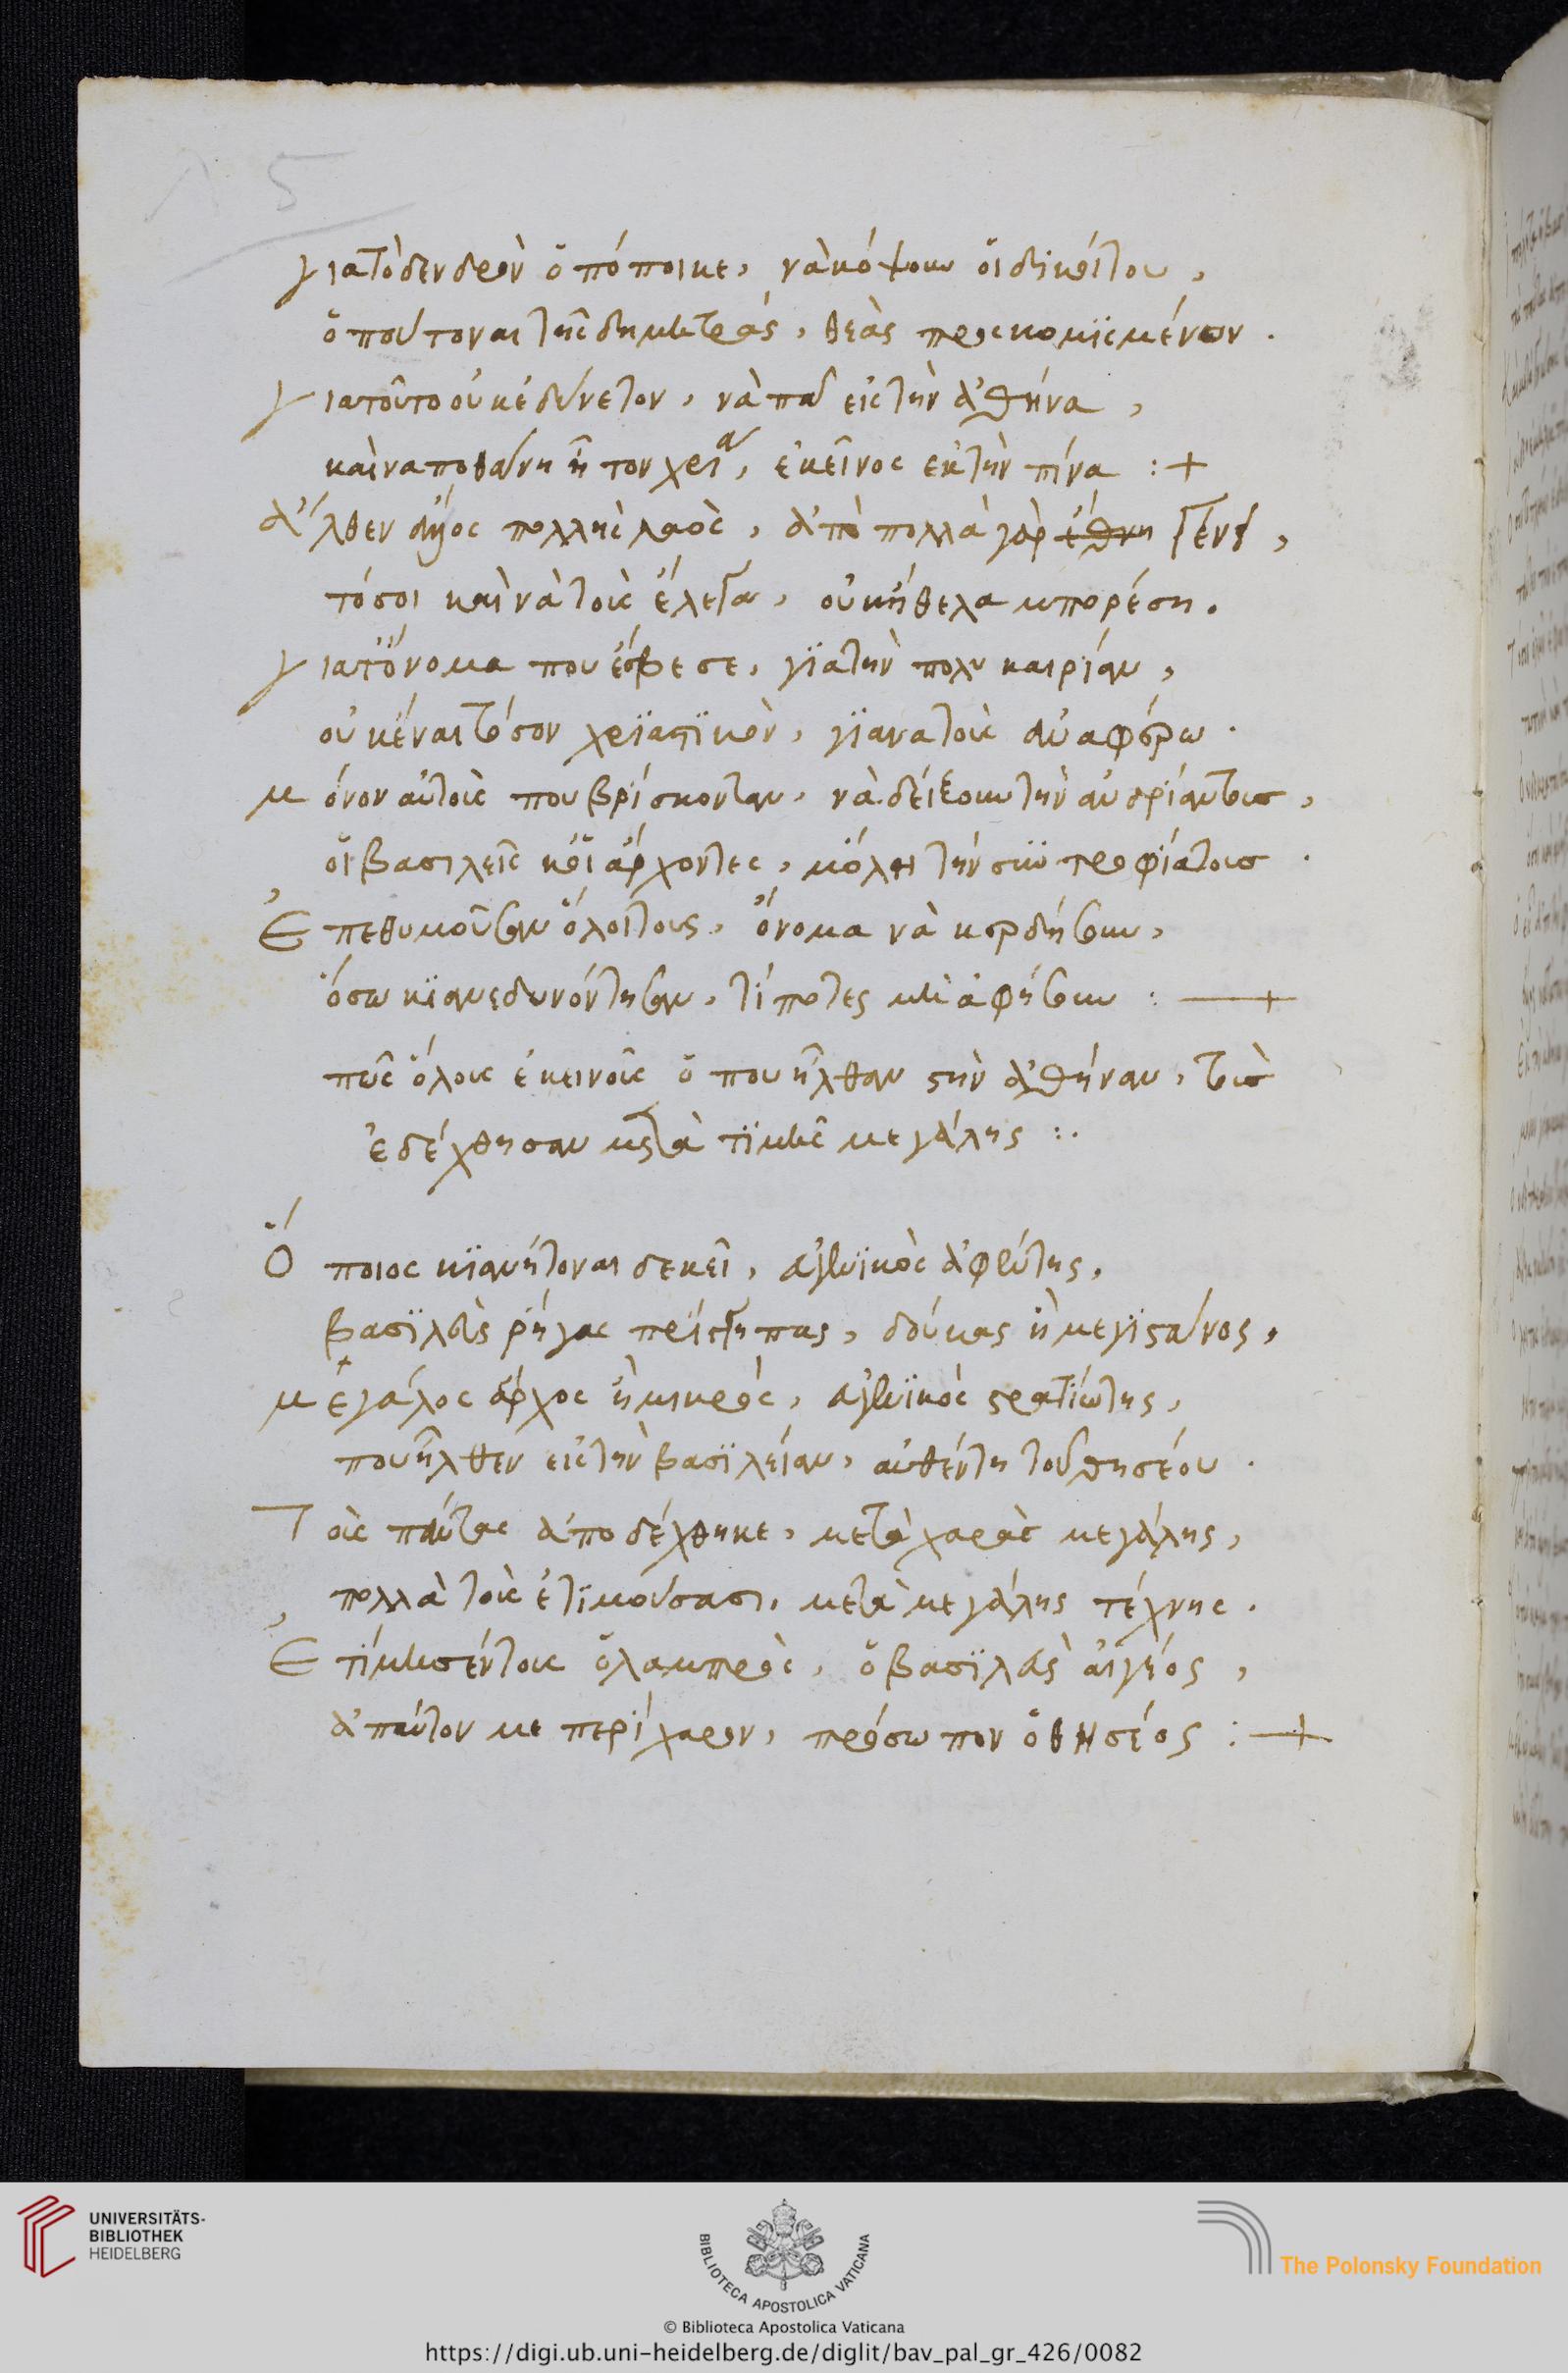 γιατὸ δενδρὸν ὁπόποικε, νὰ κόψουν οἱ δικοίτου,
ὁπούτοναι τῆς δημητρας, θεὰς προσκομϊσμένων.
γιατοῦτο οὐκ ἐδύνετον, νὰ πα εἰς τὴν ἀθήνα,
καὶ ναποθάνη ἢ τον χρεῖαν, ἐκεῖνος εκ τὴν πίνα :+
ἄλθεν πολλῆς λαὸς, ἀπὸ πολλὰ γὰρ ἔθνη γένη,
τόσοι καὶ νὰ τοὶς ἔλεγαν, οὐκ ἤθελα μπορέση.
γιατ' ὄνομα που ἔσβεσε, γϊατὴν πολυκαιρίαν,
οὐκ ἔναι τόσον χρϊαστϊκὸν, γϊανα τοὶς ἀναφέρω.
μόνον αὐτοὶς που βρίσκονταν, νὰ δείξουν τὴν ἀνδρίαν τους,
οἱ βασιλεῖς κ' οἱ ἄρχοντες, μ' όλη τήν συντροφίατους.
Ἐπεθυμοῦσαν ὅλοιτους, ὄνομα νὰ κερδήσουν,
ὅσω κϊ ανεδυνόντησαν, τίποτες μὴ ἀφήσουν : +
πῶς ὅλοις ἐκεινοῖς ὁπου ἦλθαν στὴν ἀθήναν, τοὺς
ἐδέχθησαν μετὰ τϊμῆς μεγάλης :.
Ὅποιος κϊ ανήτοναι δεκεῖ, ἀφέντης,
βασϊλεὺς ρήγας πρίντζηπας, δούκας ἢ μεγϊστάνος,
μεγάλος ἄρχος ἢ μικρὸς, στρατϊώτης,
που ἦλθεν εἰς τὴν βασϊλείαν, αὐθέντη τοῦ θησέου.
Τοὶς πάντας ἀποδέχθηκε, μετὰ χαρᾶς μεγάλης,
πολλὰ τοὶς ἐτϊμούσασι, μετὰ μεγάλης τέχνης.
Ἐτϊμησέντοις ὁ λαμπρὸς, ὁ βασϊλεὺς αἰγέος,
ἀπαύτον με περίχαρον, πρόσωπον ὁ θησέος : +
UNIVERSITÄTS-
BIBLIOTHEK
HEIDELBERG
BIBLIOTECA APOSTOLICA VATICANA
The Polonsky Foundation
© Biblioteca Apostolica Vaticana
https://digi.ub.uni-heidelberg.de/diglit/bav_pal_gr_426/0082